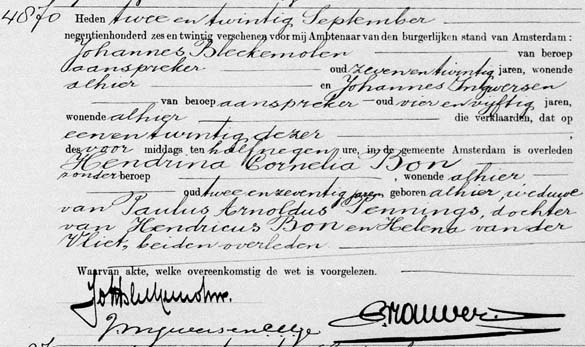 4870 Heden twee en twintig September
negentienhonderd zes en twintig verschenen voor mij Ambtenaar van den burgerlijken stand van Amsterdam:
Johannes Bleckemolen van beroep
aanspreker oud zevenentwintig jaren, wonende
alhier en Johannes Ingwersen
van beroep aanspreker oud vier en vyftig jaren,
wonende alhier die verklaarden, dat op
eenentwintig dezer
des voor middags ten half negen ure, in de gemeente Amsterdam is overleden
Hendrina Cornelia Bon
zonder beroep, wonende alhier
oud twee en zeventig jaren geboren alhier, weduwe
van Paulus Arnoldus Pennings, dochter
van Hendricus Bon en Helena van der
Vliet, beiden overleden
Waarvan akte, welke overeenkomstig de wet is voorgelezen.